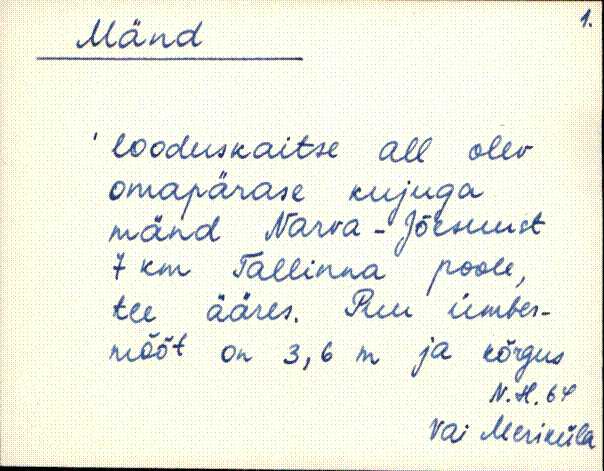 1.
Mänd
looduskaitse all olev
omapärase kujuga
mänd Narva-Jõesuust
7 km Tallinna poole,
tee ääres. Puu ümbes-
mõõt on 3,6 m ja kõrgus
N.H. 64
Vai Meriküla